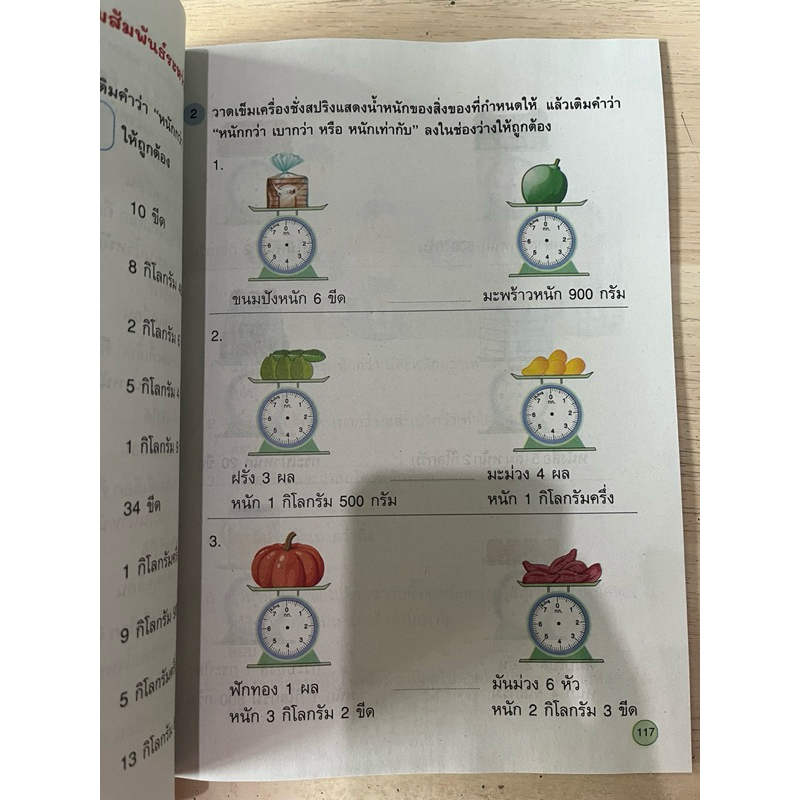 ให้ถูกต้อง
10 ขีด
8 กิโลกรัม
2 กิโลกรัม
5 กิโลกรัม
1 กิโลกรัม
34 ขีด
1 กิโลกรัม
9 กิโลกรัม
5 กิโลกรัม
13 กิโลกรัม
2 วาดเข็มเครื่องชั่งสปริงแสดงน้ำหนักของสิ่งของที่กำหนดให้ แล้วเติมคำว่า
“หนักกว่า เบากว่า หรือ หนักเท่ากับ” ลงในช่องว่างให้ถูกต้อง
1.
0 กก. 1 2 3 4 5 6 7
0 กก. 1 2 3 4 5 6 7
ขนมปังหนัก 6 ขีด
มะพร้าวหนัก 900 กรัม
2.
0 กก. 1 2 3 4 5 6 7
0 กก. 1 2 3 4 5 6 7
ฝรั่ง 3 ผล
หนัก 1 กิโลกรัม 500 กรัม
มะม่วง 4 ผล
หนัก 1 กิโลกรัมครึ่ง
3.
0 กก. 1 2 3 4 5 6 7
0 กก. 1 2 3 4 5 6 7
ฟักทอง 1 ผล
หนัก 3 กิโลกรัม 2 ขีด
มันม่วง 6 หัว
หนัก 2 กิโลกรัม 3 ขีด
117